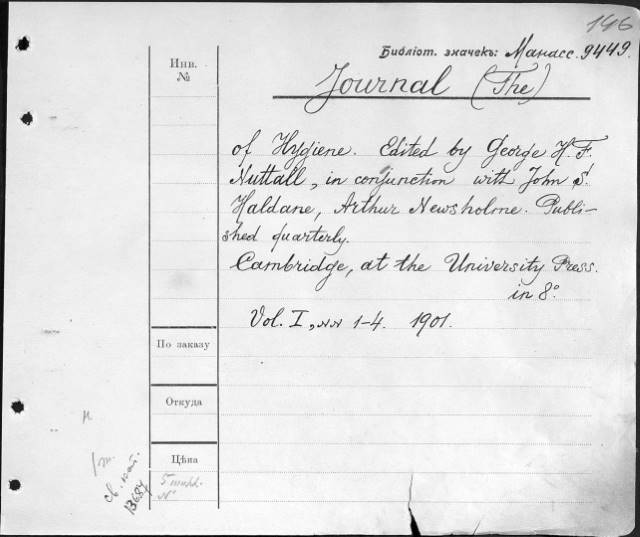 146
Библіот. значекъ: Манасс. 9449.
Инв.
№
Journal (The)
of Hygiene. Edited by George H. F.
Nuttall, in conjunction with John S.
Haldane, Arthur Newsholme. Publi-
shed quarterly.
Cambridge, at the University Press.
in 8º.
Vol. I, NN 1-4. 1901.
По заказу
Откуда
Цѣна
св. кат.
13684